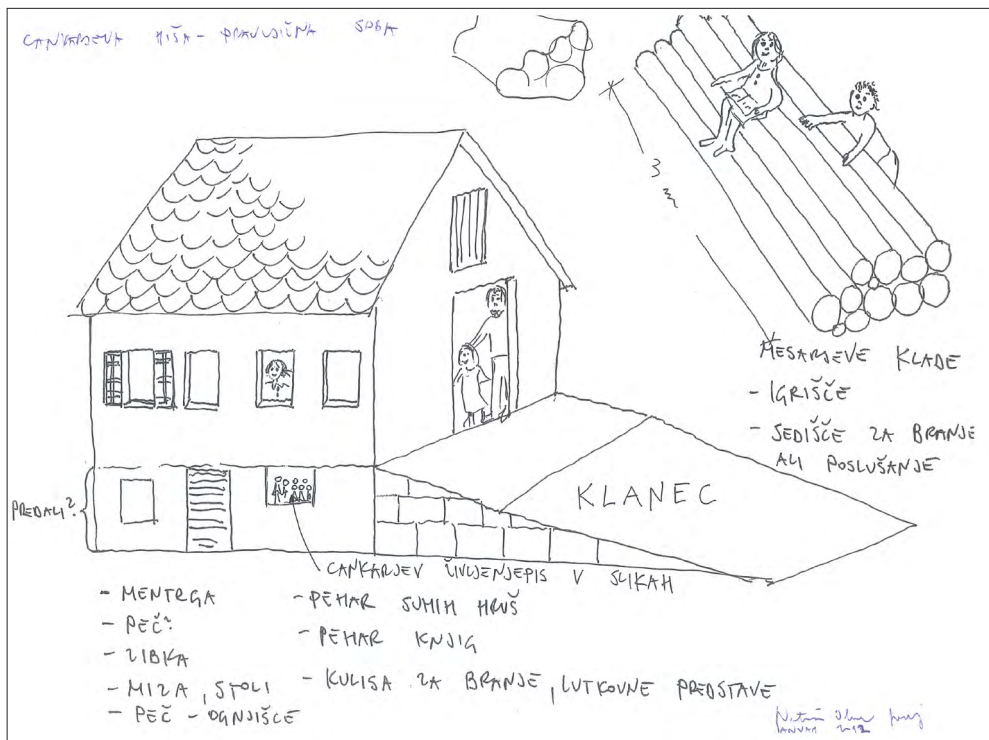 CANKARJEVA HIŠA - PRAVLJIČNA SOBA
3 m
MESARJEVE KLADE
- IGRIŠČE
- SEDIŠČE ZA BRANJE
ALI POSLUŠANJE
KLANEC
PREDALI?
CANKARJEV ŽIVLJENJEPIS V SLIKAH
- MENTRGA
- PEČ?
- ZIBKA
- MIZA, STOLI
- PEČ - OGNJIŠČE
- PEHAR SUHIH HRUŠ
- PEHAR KNJIG
- KULISA ZA BRANJE, LUTKOVNE PREDSTAVE
JANUAR 2012